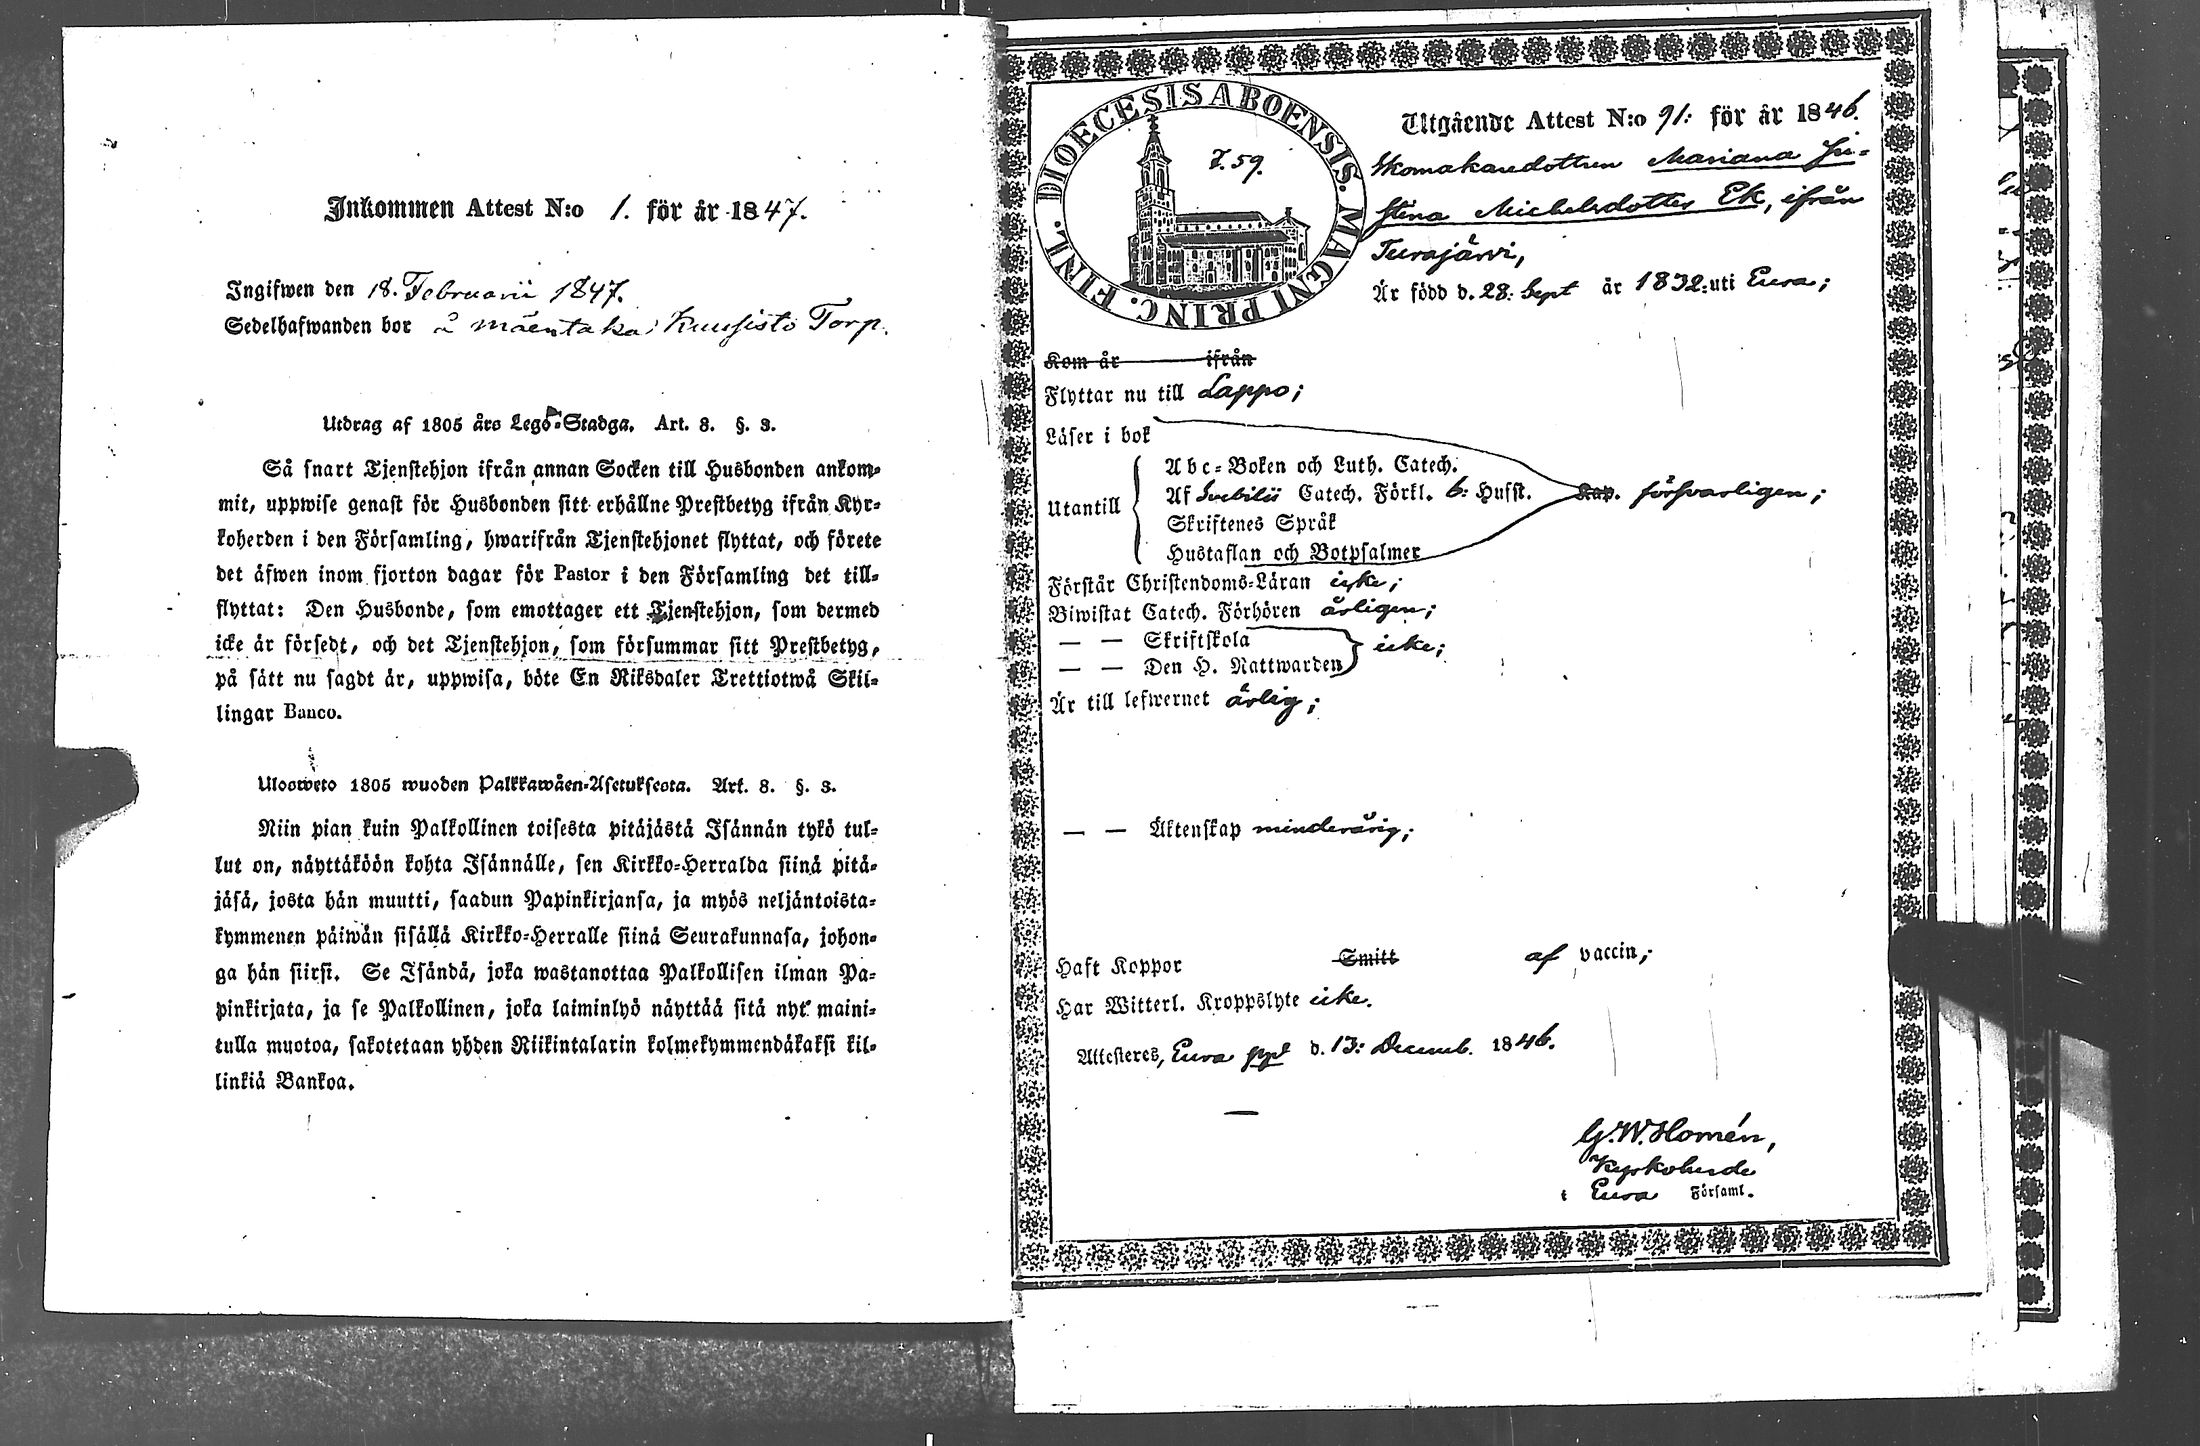 Inkommen Attest N:o 1. för år 1847.
Ingifwen den 18. Februarii 1847.
Sedelhafwanden bor å mäentaka Kuusisto Torp.
Utdrag af 1805 års Lego-Stadga. Art. 8. §. 3.
Så snart Tjenstehjon ifrån annan Socken till Husbonden ankom-
mit, uppwise genast för Husbonden sitt erhållne Prestbetyg ifrån Kyr-
koherden i den Församling, hwarifrån Tjenstehjonet flyttat, och förete
det äfwen inom fjorton dagar för Pastor i den Församling det till-
flyttat: Den Husbonde, som emottager ett Tjenstehjon, som dermed
icke är försedt, och det Tjenstehjon, som försummar sitt Prestbetyg,
på sätt nu sagdt är, uppwisa, böte En Riksdaler Trettiotwå Skil-
lingar Banco.
Ulosweto 1805 wuoden Palkkawäen-Asetuksesta. Art. 8. §. 3.
Niin pian kuin Palkollinen toisesta pitäjästä Isännän tykö tul-
lut on, näyttäköön kohta Isännälle, sen Kirkko-Herralda siinä pitä-
jäsä, josta hän muutti, saadun Papinkirjansa, ja myös neljäntoista-
kymmenen päiwän sisällä Kirkko-Herralle siinä Seurakunnasa, johon-
ga hän siirsi. Se Isändä, joka wastanottaa Palkollisen ilman Pa-
pinkirjata, ja se Palkollinen, joka laiminlyö näyttää sitä nyt maini-
tulla muotoa, sakotetaan yhden Riikintalarin kolmekymmendäkaksi kil-
linkiä Bankoa.
DIOECESIS ABOENSIS. MAGNI PRINC. FINL.
7.59.
Utgående Attest N:o 91: för år 1846.
Skomakaredottren Mariana Chri-
stina Michelsdotter Ek, ifrån
Turajärvi,
Är född d. 28: Sept år 1832: uti Eura;
Kom år ifrån
Flyttar nu till Lappo;
Läser i bok
Utantill
Abc-Boken och Luth. Catech.
Af Svebilii Catech. Förkl. 6: Husst. Kap. försvarligen;
Skriftenes Språk
Hustaflan och Botpsalmer
Förstår Christendoms-Läran icke;
Biwistat Catech. Förhören årligen;
— — Skriftskola
icke;
— — Den H. Nattwarden
Är till lefwernet ärlig;
— — Äktenskap minderårig;
Haft Koppor Smitt af vaccin;
Har Witterl. Kroppslyte icke.
Attesteres, Eura ppl d. 13: Decemb. 1846.
G.W. Homén,
Kyrkoherde
i Eura Församl.